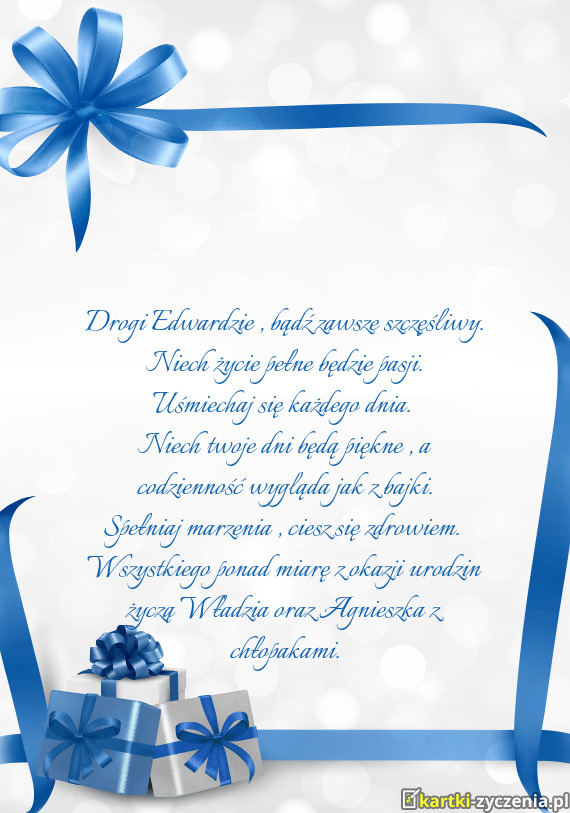 Drogi Edwardzie , bądź zawsze szczęśliwy.
Niech życie pełne będzie pasji.
Uśmiechaj się każdego dnia.
Niech twoje dni będą piękne , a
codzienność wygląda jak z bajki.
Spełniaj marzenia , ciesz się zdrowiem.
Wszystkiego ponad miarę z okazji urodzin
życzą Władzia oraz Agnieszka z
chłopakami.
kartki-zyczenia.pl